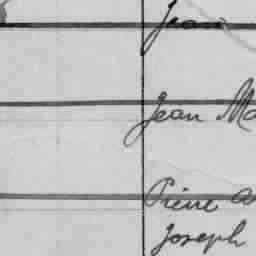 Jean
Jean Ma
Pierre A
Joseph